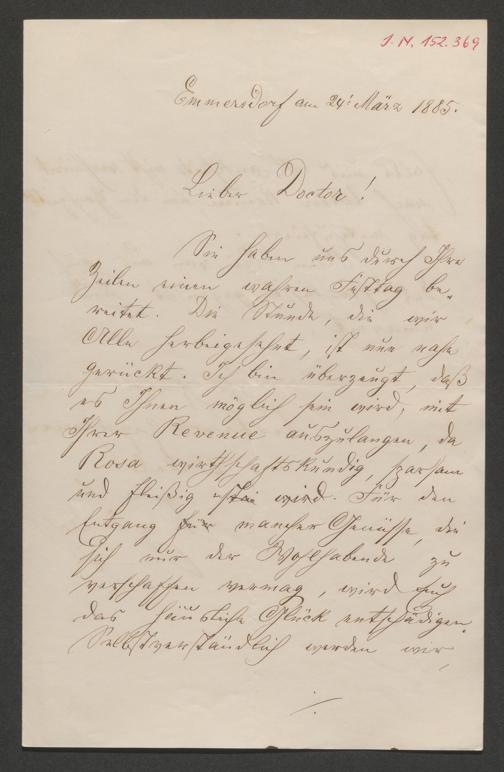 J. N. 152.369
Emmersdorf am 24t März 1885.
Lieber Doctor!
Sie haben uns durch Ihre
Zeilen einen wahren Festtag be-
reitet. Die Stunde, die wir
Alle herbeigesehnt, ist nun nahe
gerückt. Ich bin überzeugt, daß
es Ihnen möglich sein wird, mit
Ihrer Revenue auszulangen, da
Rosa wirthschaftskundig, sparsam
und fleißig sein wird. Für den
Entgang für mancher Genüsse, die
sich nur der Wohlhabende zu
verschaffen vermag, wird Euch
das häusliche Glück entschädigen.
Selbstverständlich werden wir,
./.